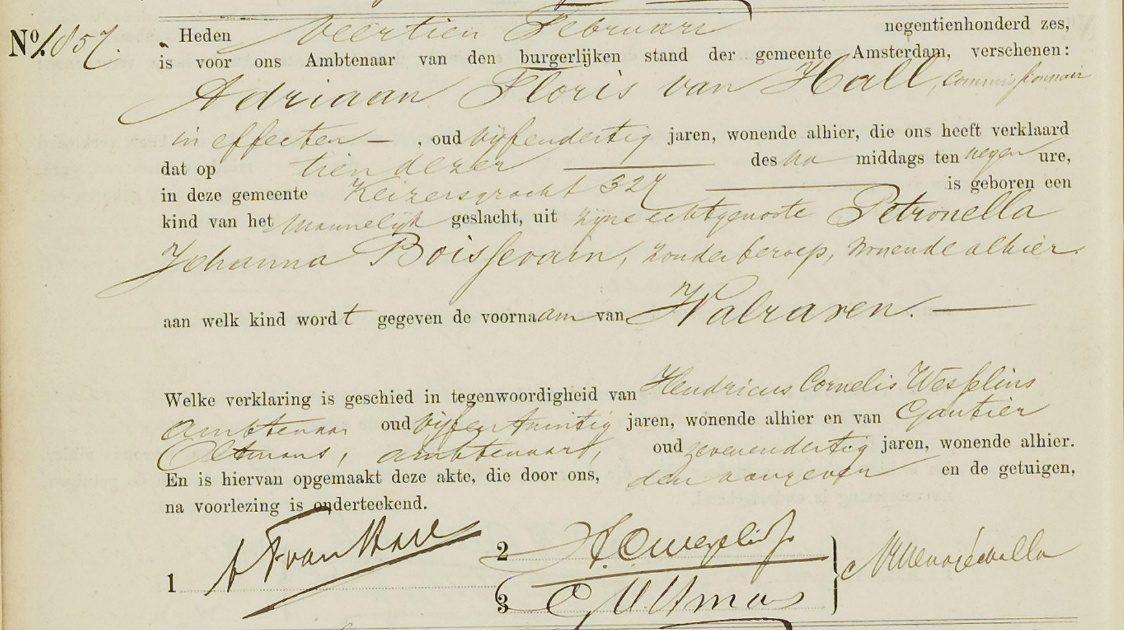 No. 1857. Heden veertien Februari negentienhonderd zes,
is voor ons Ambtenaar van den burgerlijken stand der gemeente Amsterdam, verschenen:
Adriaan Floris van Hall, commissionnair
in effecten — , oud vijfendertig jaren, wonende alhier, die ons heeft verklaard
dat op tien dezer — des na middags ten negen ure,
in deze gemeente Keizersgracht 327 — is geboren een
kind van het mannelijk geslacht, uit zijne echtgenoote Petronella
Johanna Boissevain, zonder beroep, wonende alhier
aan welk kind wordt gegeven de voornaam van Walraven. —
Welke verklaring is geschied in tegenwoordigheid van Hendricus Cornelis Wesselius
ambtenaar oud vijfentwintig jaren, wonende alhier en van Gautier
Oltmans, ambtenaar, oud zevenendertig jaren, wonende alhier.
En is hiervan opgemaakt deze akte, die door ons, den aangever en de getuigen,
na voorlezing is onderteekend.
1 AFvanHall 2 HCWesselius
3 GOltmans